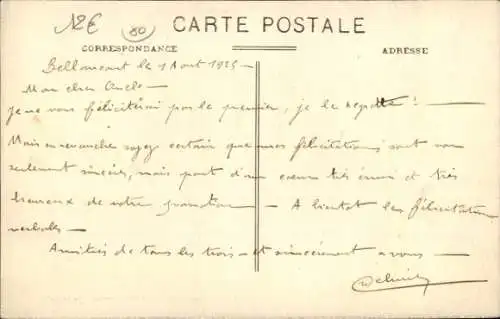 12€ 80
CARTE POSTALE
CORRESPONDANCE
ADRESSE
Bellancourt le 1 Aout 1925 -
Mon cher Oncle -
Je ne vous féliciterai pas le premier, je le regrette ! -
Mais en revanche soyez certain que mes félicitations sont non
seulement sincères, mais part d'un cœur très ému et très
heureux de votre promotion - A bientot les félicitations
verbales -
Amitiés de tous les trois - et sincèrement a vous -